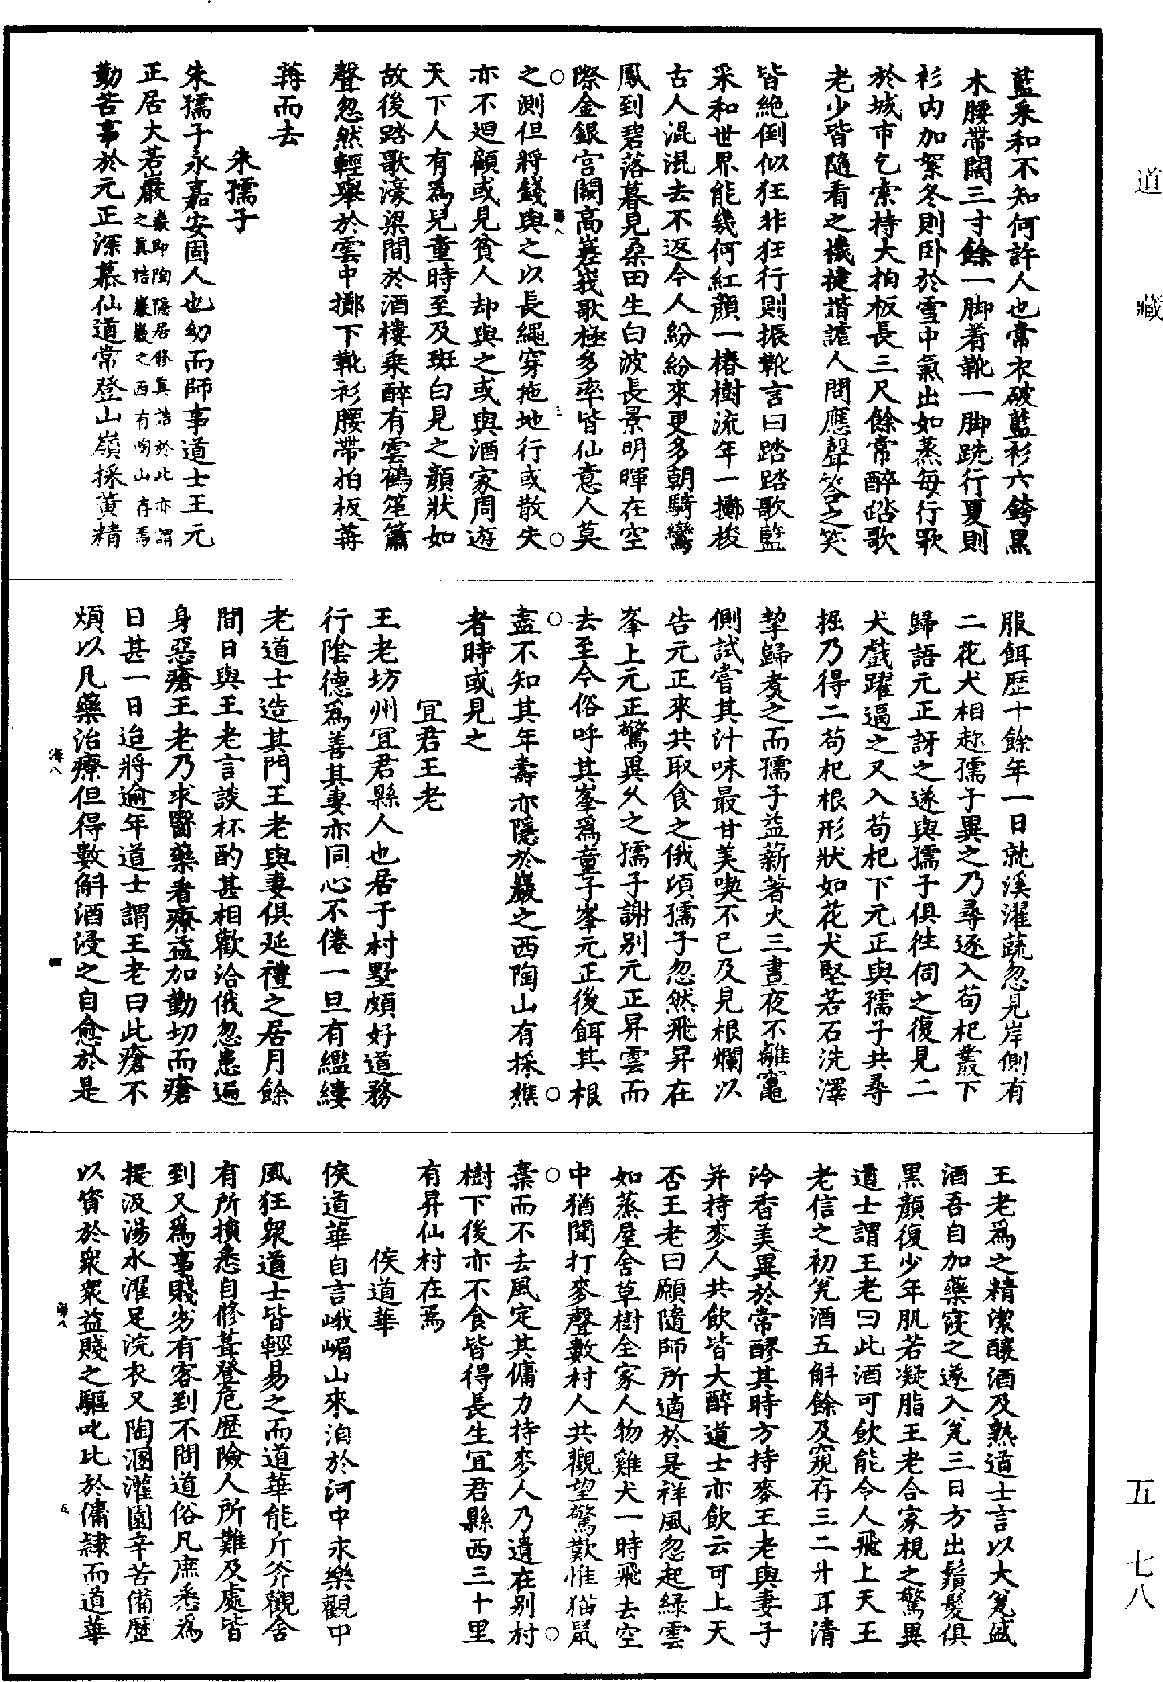 道藏
藍采和不知何許人也常衣破藍衫六銙黑
木腰帶闊三寸餘一脚着靴一脚跣行夏則
衫内加絮冬則卧於雪中氣出如蒸每行歌
於城市乞索持大拍板長三尺餘常醉踏歌
老少皆隨看之機捷諧謔人問應聲答之笑
皆絶倒似狂非狂行則振靴言曰踏踏歌藍
采和世界能幾何紅顔一椿樹流年一擲梭
古人混混去不返今人紛紛來更多朝騎鸞
鳳到碧落暮見桑田生白波長景明暉在空
際金銀宫闕高嵳峩歌極多率皆仙意人莫
之測但將錢與之以長繩穿拖地行或散失
亦不廻顧或見貧人却與之或與酒家周遊
天下人有為兒童時至及斑白見之顔狀如
故後踏歌濠梁間於酒樓乗醉有雲鶴笙簫
聲忽然輕舉於雲中擲下靴衫腰帶拍板苒
苒而去
朱孺子
朱孺子永嘉安固人也幼而師事道士王元
正居大若巖巖即陶隱居修真誥於此亦謂之真誥巖巖之西有陶山存焉
勤苦事於元正深慕仙道常登山嶺採黄精
服餌歷十餘年一日就溪濯蔬忽見岸側有
二花犬相趂孺子異之乃尋逐入苟杞叢下
歸語元正訝之遂與孺子俱徃伺之復見二
犬戲躍逼之又入苟杞下元正與孺子共尋
掘乃得二苟杞根形狀如花犬堅若石洗澤
挈歸煑之而孺子益薪著火三晝夜不離竈
側試嘗其汁味最甘美喫不已及見根爛以
告元正來共取食之俄頃孺子忽然飛昇在
峯上元正驚異久之孺子謝别元正昇雲而
去至今俗呼其峯爲童子峯元正後餌其根
盡不知其年壽亦隱於巖之西陶山有採樵
者時或見之
宜君王老
王老坊州宜君縣人也居于村墅頗好道務
行陰德爲善其妻亦同心不倦一旦有繿縷
老道士造其門王老與妻俱延禮之居月餘
間日與王老言談杯酌甚相歡洽俄忽患遍
身惡瘡王老乃求醫藥看療益加勤切而瘡
日甚一日迨將逾年道士謂王老曰此瘡不
煩以凡藥治療但得數斛酒浸之自愈於是
王老爲之精潔釀酒及熟道士言以大瓮盛
酒吾自加藥浸之遂入瓮三日方出鬚髮俱
黑顔復少年肌若凝脂王老合家視之驚異
道士謂王老曰此酒可飲能令人飛上天王
老信之初瓮酒五斛餘及窺存三二斗耳清
泠香美異於常醪其時方持麥王老與妻子
并持麥人共飲皆大醉道士亦飲云可上天
否王老曰願隨師所適於是祥風忽起綠雲
如蒸屋舍草樹全家人物雞犬一時飛去空
中猶聞打麥聲數村人共觀望驚歎惟猫鼠
棄而不去風定其傭力持麥人乃遺在别村
樹下後亦不食皆得長生宜君縣西三十里
有昇仙村在焉
侯道華
侯道華自言峨嵋山來泊於河中永樂觀中
風狂衆道士皆輕易之而道華能斤斧觀舍
有所損悉自修葺登危歴險人所難及處皆
到又爲事賤劣有客到不問道俗凡庶悉爲
提汲湯水濯足浣衣又陶溷灌園辛苦備歴
以資於衆衆益賤之驅叱比於傭隷而道華
五 七八